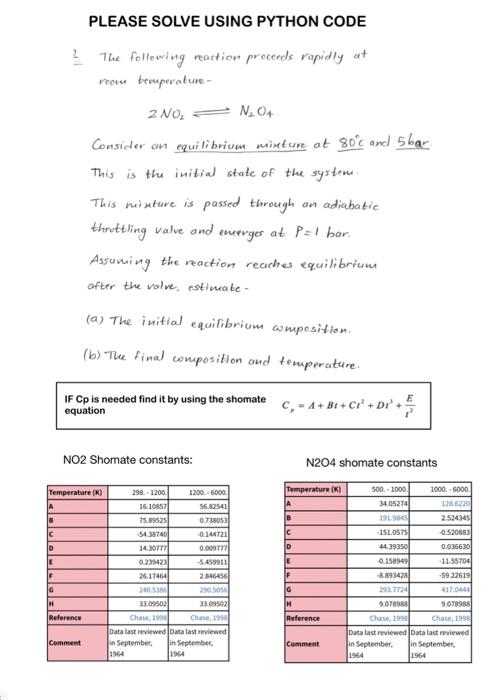 PLEASE SOLVE USING PYTHON CODE
2 The following reaction proceeds rapidly at
room temperature-
2 NO₂ ⇌ N₂O₄.
Consider an equilibrium mixture at 80°c and 5bar
This is the initial state of the system.
This mixture is passed through an adiabatic
throttling valve and emerges at P=1 bar.
Assuming the reaction reaches equilibrium
after the valve, estimate-
(a) The initial equilibrium composition.
(b) The final composition and temperature.
IF Cp is needed find it by using the shomate
equation
C_p = A + Bt + Ct² + Dt³ + E/t²
NO2 Shomate constants:
N2O4 shomate constants
Temperature (K) 298. - 1200. 1200. - 6000.
A 16.10857 56.82541
B 75.89525 0.738053
C -54.38740 -0.144721
D 14.30777 0.009777
E 0.239423 -5.459911
F 26.17464 2.846456
G 240.5386 290.5056
H 33.09502 33.09502
Reference Chase, 1998 Chase, 1998
Comment Data last reviewed in September, 1964 Data last reviewed in September, 1964
Temperature (K) 500. - 1000. 1000. - 6000.
A 34.05274 128.6220
B 191.9845 2.524345
C -151.0575 -0.520883
D 44.39350 0.036630
E -0.158949 -11.55704
F -8.893428 -59.22619
G 293.7724 417.0444
H 9.078988 9.078988
Reference Chase, 1998 Chase, 1998
Comment Data last reviewed in September, 1964 Data last reviewed in September, 1964